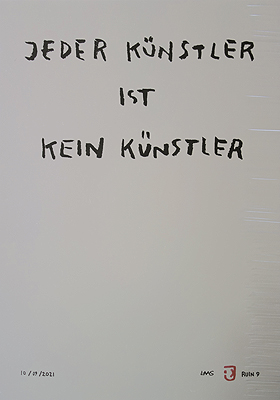 JEDER KÜNSTLER
IST
KEIN KÜNSTLER
10/17/2021 LMG RUIN 9